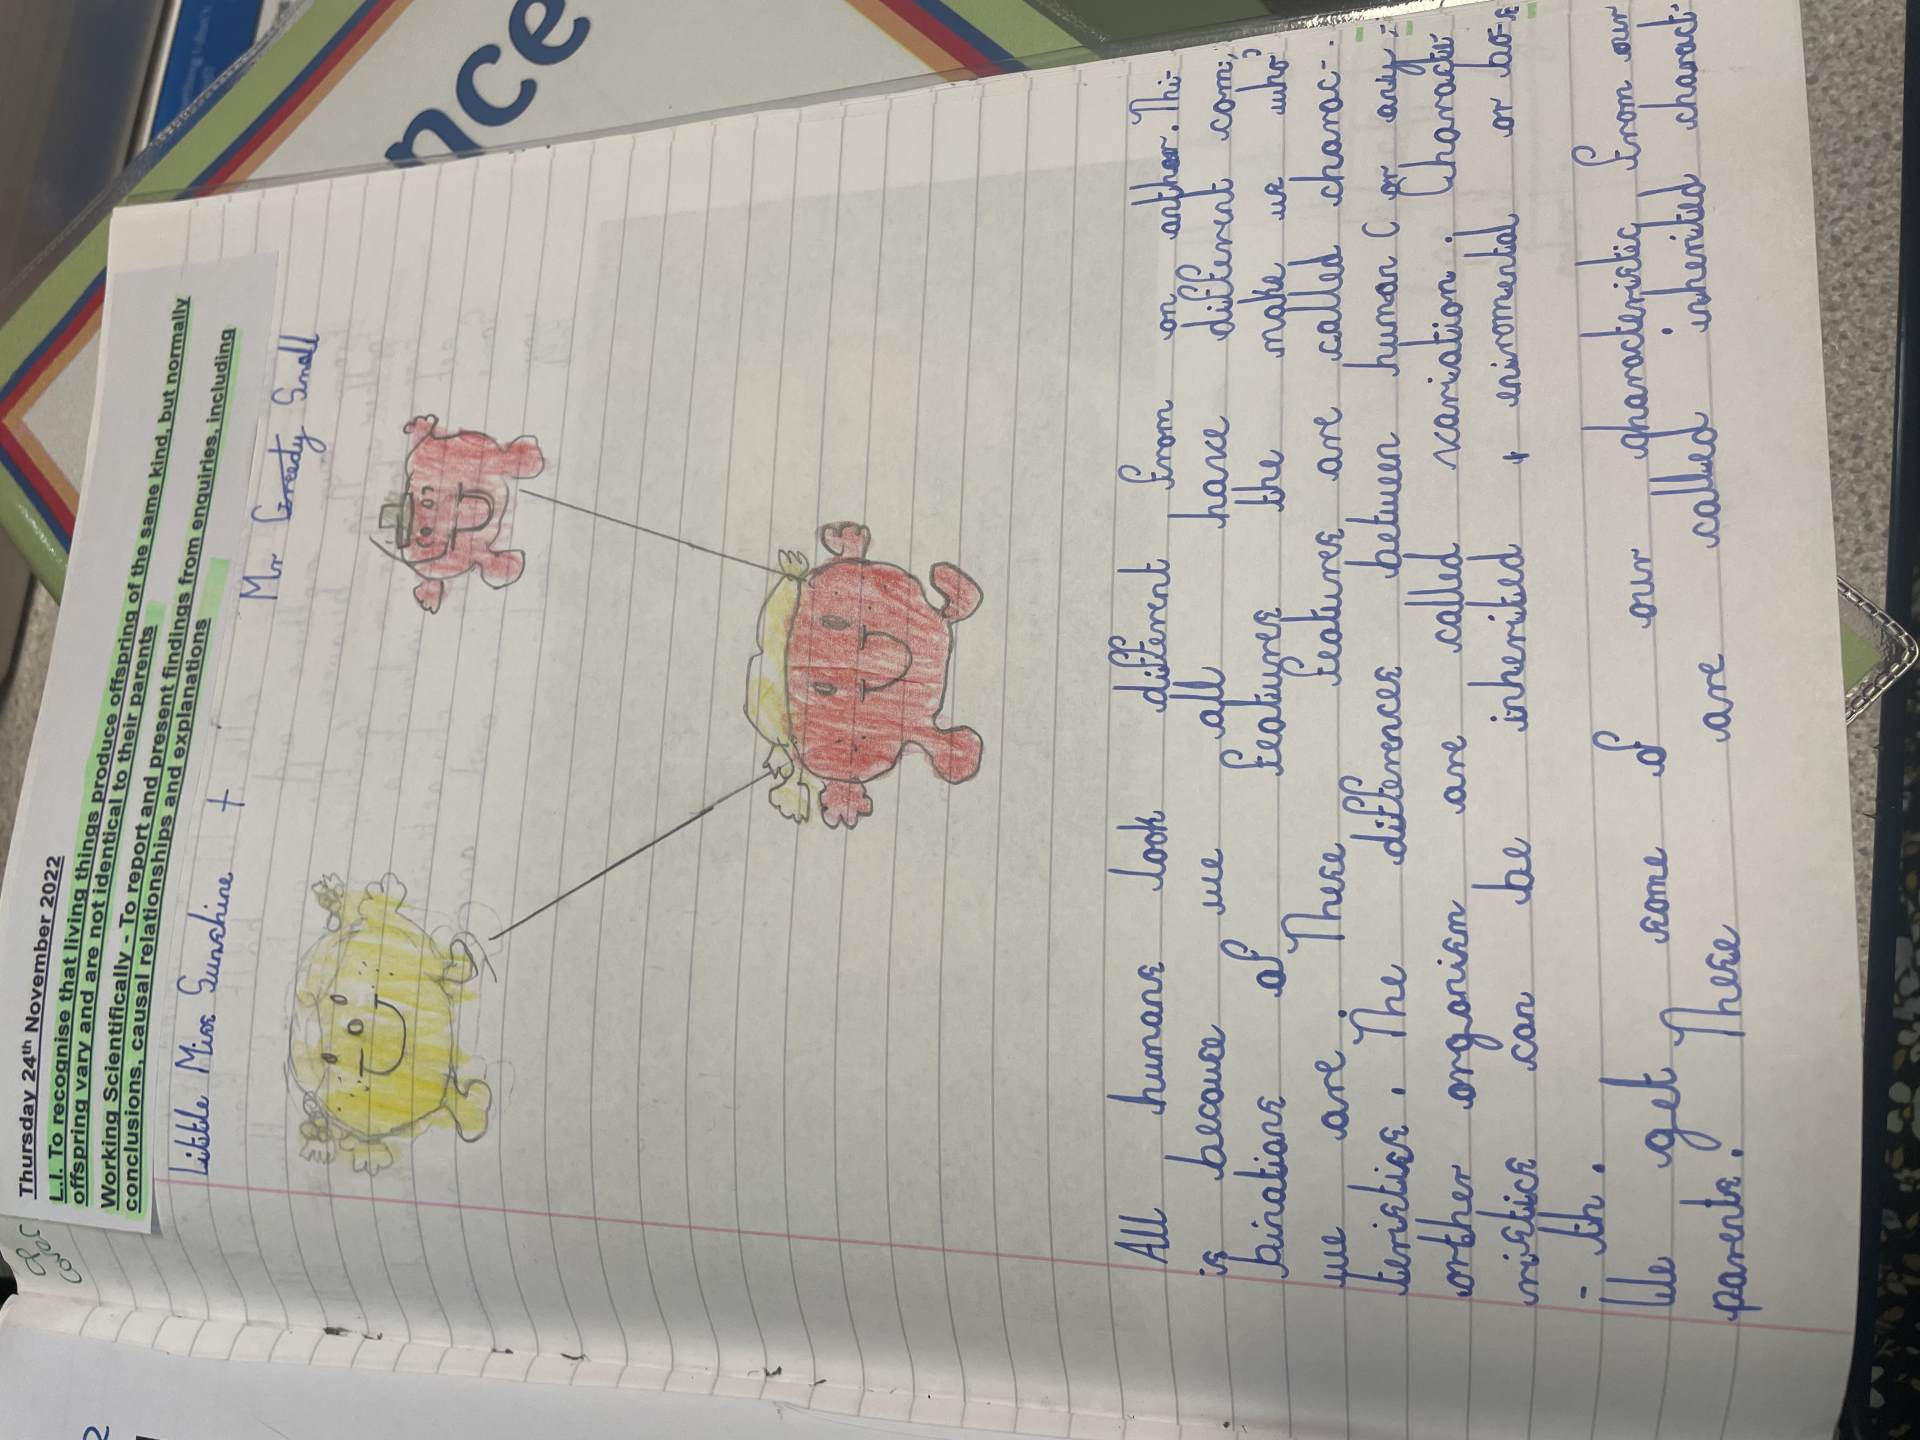 nce
Thursday 24th November 2022
L.I. To recognise that living things produce offspring of the same kind, but normally
offspring vary and are not identical to their parents
Working Scientifically - To report and present findings from enquiries, including
conclusions, causal relationships and explanations
Little Miss Sunshine + Mr Greedy Small
All humans look different from on anther. Thi-
is because we all have different com;
binations of features the make us who
we are. These features are called charac-.
teristics. The differences between human C or any-
orther organism are called variation. Characte
ristics can be inherited + enironmental or bo-
- th.
We get some of our characteristic from our
parents. These are called inherited charact-